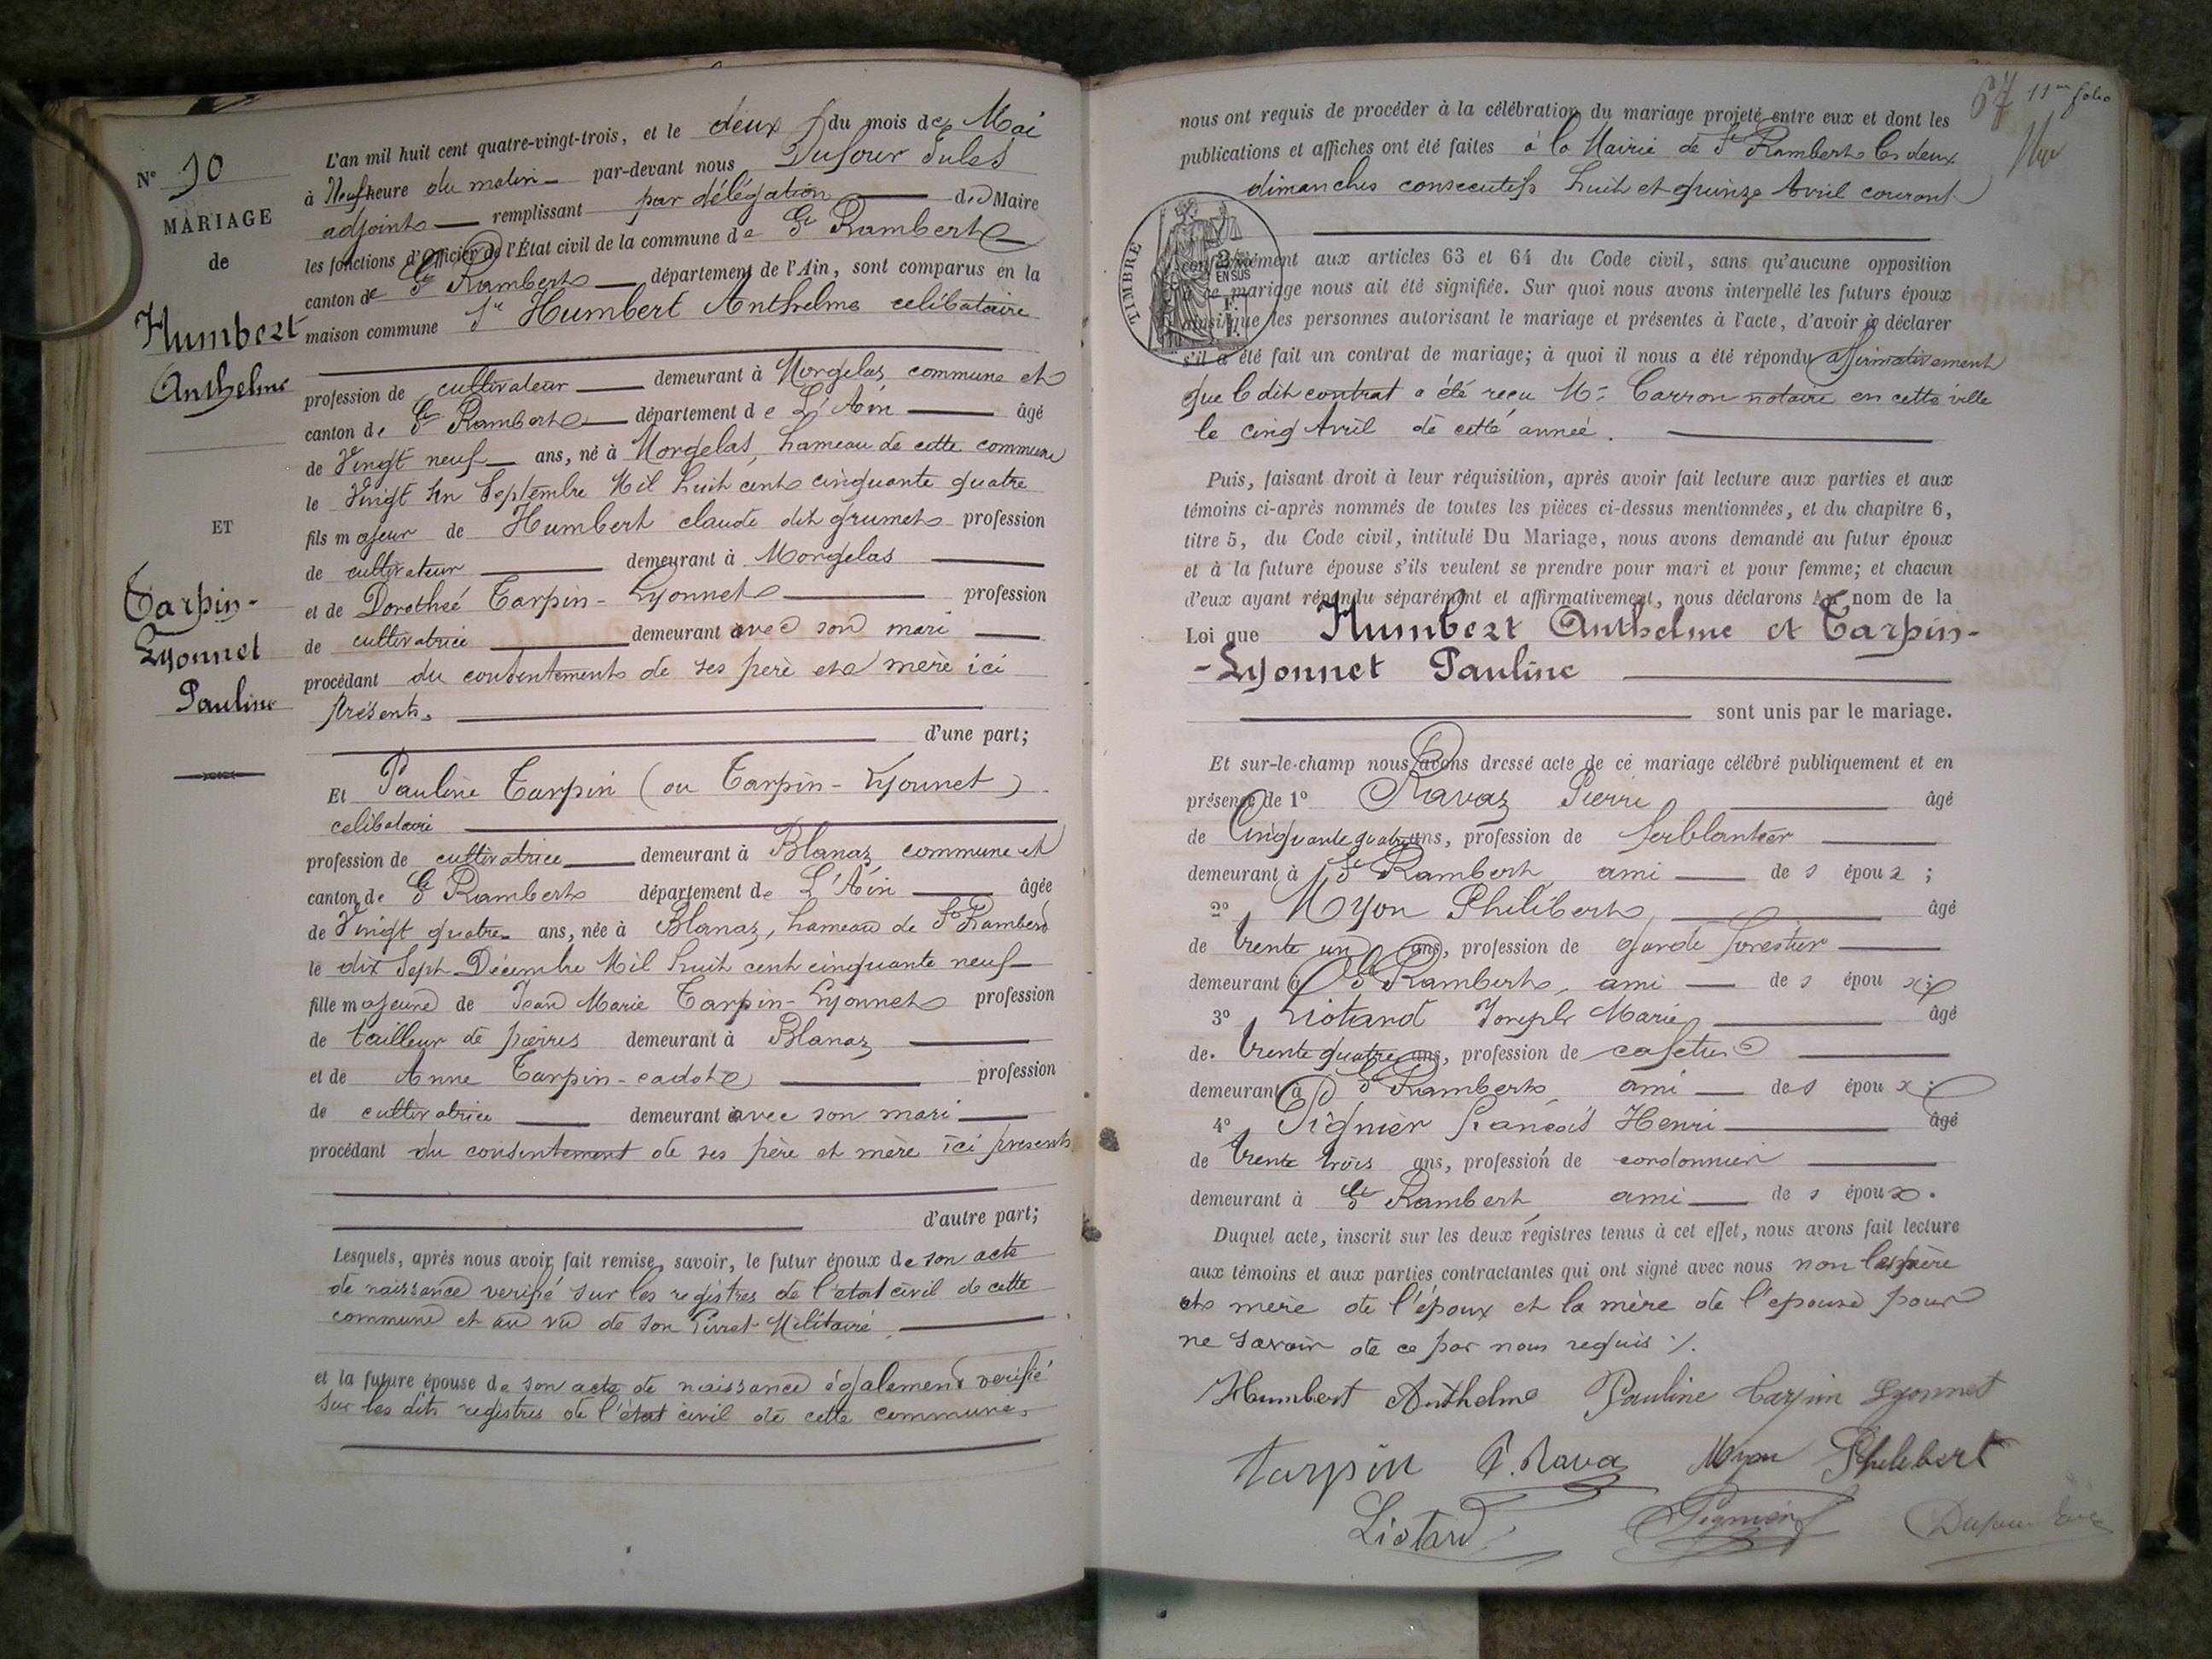 N° 10
MARIAGE
de
Humbert
Anthelme
ET
Tarpin-
Lyonnet
Pauline
L'an mil huit cent quatre-vingt-trois, et le deux du mois de Mai
à Neuf heure du matin par-devant nous Dufour Jules
adjoint remplissant par délégation du Maire
les fonctions d'Officier de l'État civil de la commune de St Rambert
canton de St Rambert département de l'Ain, sont comparus en la
maison commune Humbert Anthelme celibataire
profession de cultivateur demeurant à Morgelas commune et
canton de St Rambert département de L'Ain âgé
de Vingt neuf ans, né à Morgelas, hameau de cette commune
le Vingt Un Septembre Mil huit cent cinquante quatre
fils majeur de Humbert claude dit grumet profession
de cultivateur demeurant à Morgelas
et de Dorotheé Tarpin-Lyonnet profession
de cultivatrice demeurant avec son mari
procédant du consentement de ses père et mère ici
présents.
d'une part;
Et Pauline Tarpin (ou Tarpin-Lyonnet)
celibataire
profession de cultivatrice demeurant à Blanaz commune et
canton de St Rambert département de L'Ain âgée
de Vingt quatre ans, née à Blanaz, hameau de St Rambert
le dix Sept Décembre Mil huit cent cinquante neuf
fille majeure de Jean Marie Tarpin-Lyonnet profession
de tailleur de pierres demeurant à Blanaz
et de Anne Tarpin-cadot profession
de cultivatrice demeurant avec son mari
procédant du consentement de ses père et mère ici presents
d'autre part;
Lesquels, après nous avoir fait remise, savoir, le futur époux de son acte
de naissance verifié sur les registres de l'etat civil de cette
commune et au vu de son Livret Militaire
et la future épouse de son acte de naissance également verifié
sur les dits registres de l'état civil de cette commune.
67 11me folio
nous ont requis de procéder à la célébration du mariage projeté entre eux et dont les
publications et affiches ont été faites à la Mairie de St Rambert les deux
dimanches consecutifs huit et quinze Avril courant
TIMBRE
2/10 EN SUS
conformément aux articles 63 et 64 du Code civil, sans qu'aucune opposition
à ce mariage nous ait été signifiée. Sur quoi nous avons interpellé les futurs époux
ainsi que les personnes autorisant le mariage et présentes à l'acte, d'avoir à déclarer
s'il a été fait un contrat de mariage; à quoi il nous a été répondu affirmativement
que le dit contrat a été reçu Me Carron notaire en cette ville
le cinq Avril de cette année.
Puis, faisant droit à leur réquisition, après avoir fait lecture aux parties et aux
témoins ci-après nommés de toutes les pièces ci-dessus mentionnées, et du chapitre 6,
titre 5, du Code civil, intitulé Du Mariage, nous avons demandé au futur époux
et à la future épouse s'ils veulent se prendre pour mari et pour femme; et chacun
d'eux ayant répondu séparément et affirmativement, nous déclarons Au nom de la
Loi que Humbert Anthelme et Tarpin-
-Lyonnet Pauline
sont unis par le mariage.
Et sur-le-champ nous avons dressé acte de ce mariage célébré publiquement et en
présence de 1° Ravaz Pierre âgé
de Cinquante quatre ans, profession de ferblantier
demeurant à St Rambert, ami des époux;
2° Myon Philibert, âgé
de trente un ans, profession de garde forestier
demeurant à St Rambert, ami des époux;
3° Liotard Joseph Marie âgé
de trente quatre ans, profession de cafetier
demeurant à St Rambert, ami des époux;
4° Pignier françois Henri âgé
de trente trois ans, profession de cordonnier
demeurant à St Rambert, ami des époux.
Duquel acte, inscrit sur les deux régistres tenus à cet effet, nous avons fait lecture
aux témoins et aux parties contractantes qui ont signé avec nous non les père
et mère de l'époux et la mère de l'epouse pour
ne savoir de ce par nous requis ./.
Humbert Anthelme Pauline Tarpin Lyonnet
tarpin P. Ravaz Myon Philebert
Liotard Pignier Dufour Jules